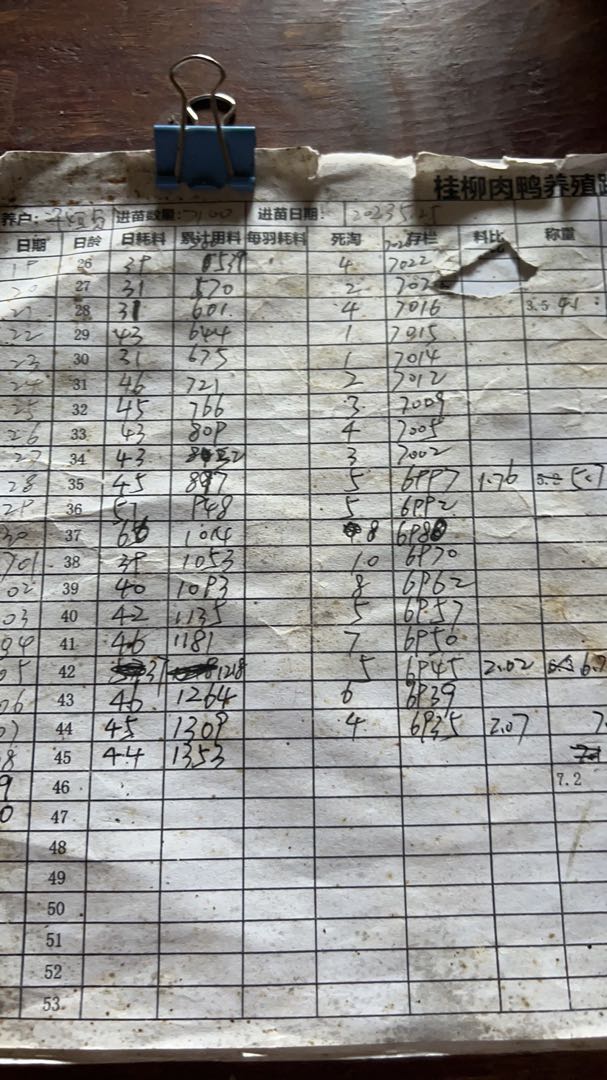 桂柳肉鸭养殖
养户: 进苗数量: 7100 进苗日期: 2023 5.25
日期 日龄 日耗料 累计用料 每羽耗料 死淘 存栏 料比 称重
19 26 39 0539 4 7022
20 27 31 570 2 702
21 28 31 601 4 7016 3.5
22 29 43 644 1 7015
23 30 31 675 1 7014
24 31 46 721 2 7012
25 32 45 766 3 7009
26 33 43 809 4 7005
27 34 43 3 7002
28 35 45 897 5 6997 1.76 5.7
29 36 51 948 5 6992
30 37 66 1014 8 698
701 38 39 1053 10 6970
02 39 40 1093 8 6962
03 40 42 1135 5 6957
04 41 46 1181 7 6950
05 42 37 1218 5 6945 2.02 6.7
06 43 46 1264 6 6939
07 44 45 1309 4 6935 2.07 7.
8 45 44 1353
9 46 7.2
0 47
48
49
50
51
52
53